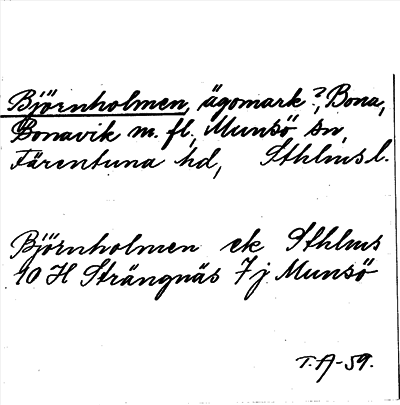 Björnholmen, ägomark?, Bona,
Bonavik m. fl., Munsö sn,
Färentuna hd, Sthlms l.
Björnholmen ek Sthlms
10 H Strängnäs 7j Munsö
T.A-59.